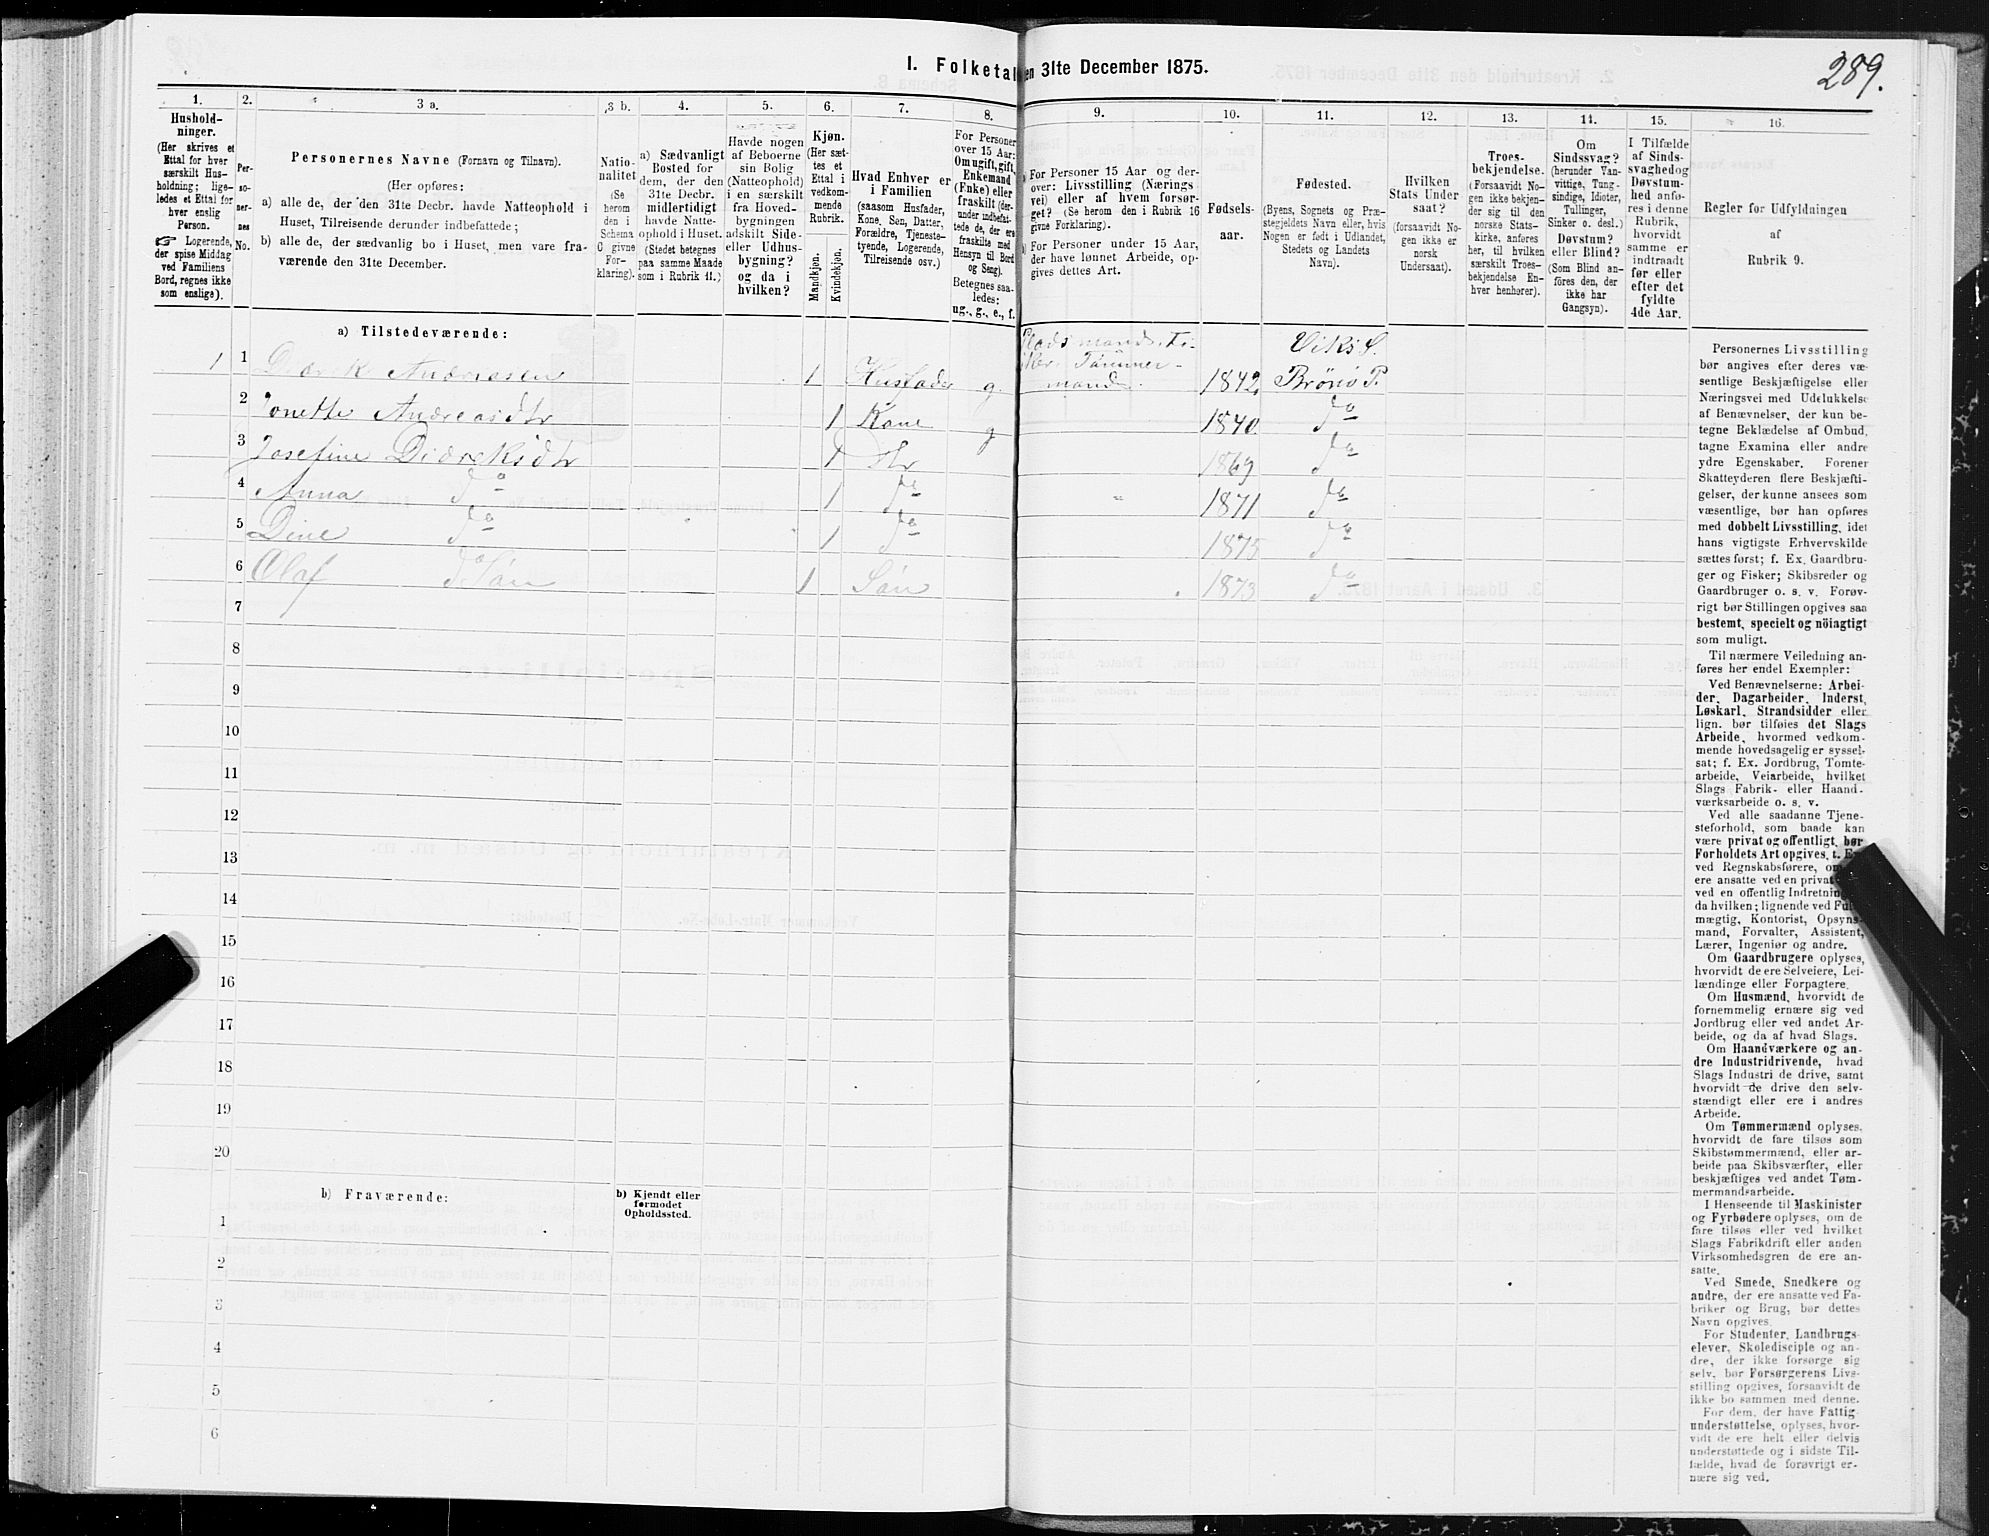 289.
I. Folketal den 31te December 1875.
1.
Hushold-
ninger.
(Her skrives et
Ettal for hver
særskilt Hus-
holdning; lige-
ledes et Ettal for
hver enslig
Person.
☞ Logerende,
der spise Middag
ved Familiens
Bord, regnes ikke
som enslige).
2.
Per-
so-
ner-
nes
No.
3 a.
Personernes Navne (Fornavn og Tilnavn).
(Her opføres:
a) alle de, der den 31te Decbr. havde Natteophold i
Huset, Tilreisende derunder indbefattede;
b) alle de, der sædvanlig bo i Huset, men vare fra-
værende den 31te December.
3 b.
Natio-
nalitet
(Se
herom
den i
Schema
C givne
For-
klaring).
4.
a) Sædvanligt
Bosted for
dem, der den
31te Decbr.
midlertidigt
havde Natte-
ophold i Huset.
(Stedet betegnes
paa samme Maade
som i Rubrik 11.)
5.
Havde nogen
af Beboerne
sin Bolig
(Natteophold)
i en særskilt
fra Hoved-
bygningen
adskilt Side-
eller Udhus-
bygning?
og da i
hvilken?
6.
Kjøn.
(Her sæt-
tes et
Ettal i
vedkom-
mende
Rubrik.
Mandkjøn.
Kvindekjøn.
7.
Hvad Enhver er
i Familien
(saasom Husfader,
Kone, Søn, Datter,
Forældre, Tjeneste-
tyende, Logerende,
Tilreisende osv.)
8.
For Personer
over 15 Aar:
Om ugift, gift,
Enkemand
(Enke) eller
fraskilt (der-
under indbefat-
tede de, der ere
fraskilte med
Hensyn til Bord
og Seng).
Betegnes saa-
ledes:
ug., g., e., f.
9.
For Personer 15 Aar og der-
over: Livsstilling (Nærings
vei) eller af hvem forsør-
get? (Se herom den i Rubrik 16
givne Forklaring).
For Personer under 15 Aar,
der have lønnet Arbeide, op-
gives dettes Art.
10.
Fødsels-
aar.
11.
Fødested.
(Byens, Sognets og Præ-
stegjeldets Navn eller, hvis
Nogen er født i Udlandet,
Stedets og Landets
Navn).
12.
Hvilken
Stats Under
saat?
(forsaavidt No-
gen ikke er
norsk
Undersaat).
13.
Troes-
bekjendelse.
(Forsaavidt No-
gen ikke bekjen-
der sig til den
norske Stats-
kirke, anføres
her, til hvilken
særskilt Troes-
bekjendelse En-
hver henhører).
14.
Om
Sindssvag?
(herunder Van-
vittige, Tung-
sindige, Idioter,
Tullinger,
Sinker o. desl.)
Døvstum?
eller Blind?
(Som Blind an-
føres den, der
ikke har
Gangsyn).
15.
I Tilfælde
af Sinds-
svaghed og
Døvstum-
hed anfø-
res i denne
Rubrik,
hvorvidt
samme er
indtraadt
før eller
efter det
fyldte
4de Aar.
16.
Regler for Udfyldningen
af
Rubrik 9.
a) Tilstedeværende:
1 1 Didrik Andreasen 1 Husfader g. Pladsmand, Fi-
sker, Tømmer-
mand. 1842 Viks S.
Brönö P.
2 Jonette Andreasdtr 1 Kone g 1840 do
3 Josefine Didreksdtr 1 Dtr 1869 do
4 Anna do 1 do " 1871 do
5 Dine do 1 do 1875 do
6 Olaf do Søn 1 Søn 1873 do
7
8
9
10
11
12
13
14
15
16
17
18
19
20
b) Fraværende:
b) Kjendt eller
formodet
Opholdssted.
1
2
3
4
5
6
Personernes Livsstilling
bør angives efter deres væ-
sentlige Beskjæftigelse eller
Næringsvei med Udelukkelse
af Benævnelser, der kun be-
tegne Beklædelse af Ombud,
tagne Examina eller andre
ydre Egenskaber. Forener
Skatteyderen flere Beskjæfti-
gelser, der kunne ansees som
væsentlige, bør han opføres
med dobbelt Livsstilling, idet
hans vigtigste Erhvervskilde
sættes først; f. Ex. Gaardbru-
ger og Fisker; Skibsreder og
Gaardbruger o. s. v. Forøv-
rigt bør Stillingen opgives saa
bestemt, specielt og nöiagtigt
som muligt.
Til nærmere Veiledning an-
føres her endel Exempler:
Ved Benævnelserne: Arbei-
der, Dagarbeider, Inderst,
Løskarl, Strandsidder eller
lign. bør tilføies det Slags
Arbeide, hvormed vedkom-
mende hovedsagelig er syssel-
sat; f. Ex. Jordbrug, Tomte-
arbeide, Veiarbeide, hvilket
Slags Fabrik- eller Haand-
værksarbeide o. s. v.
Ved alle saadanne Tjene-
steforhold, som baade kan
være privat og offentligt, bør
Forholdets Art opgives, t. Ex.
ved Regnskabsførere, om
ere ansatte ved en privat
ved en offentlig Indretning
da hvilken; lignende ved Fuld-
mægtig, Kontorist, Opsyns-
mand, Forvalter, Assistent,
Lærer, Ingeniør og andre.
Om Gaardbrugere oplyses,
hvorvidt de ere Selveiere, Lei-
lændinge eller Forpagtere.
Om Husmænd, hvorvidt de
fornemmelig ernære sig ved
Jordbrug eller ved andet Ar-
beide, og da af hvad Slags.
Om Haandværkere og an-
dre Industridrivende, hvad
Slags Industri de drive, samt
hvorvidt de drive den selv-
stændigt eller ere i andres
Arbeide.
Om Tømmermænd oplyses,
hvorvidt de fare tilsøs som
Skibstømmermænd, eller ar-
beide paa Skibsværfter, eller
beskjæftiges ved andet Tøm-
mermandsarbeide.
I Henseende til Maskinister
og Fyrbødere oplyses, om de
fare tilsøs eller ved hvilket
Slags Fabrikdrift eller anden
Virksomhedsgren de ere an-
satte.
Ved Smede, Snedkere og
andre, der ere ansatte ved Fa-
briker og Brug, bør dettes
Navn opgives.
For Studenter, Landbrugs-
elever, Skoledisciple og an-
dre, der ikke forsørge sig
selv, bør Forsørgerens Livs-
stilling opgives, forsaavidt de
ikke bo sammen med denne.
For dem, der have Fattig-
understøttelse, oplyses, hvor-
vidt de ere helt eller delvis
understøttede og i sidste Til-
fælde, hvad de forøvrigt er-
nære sig ved.